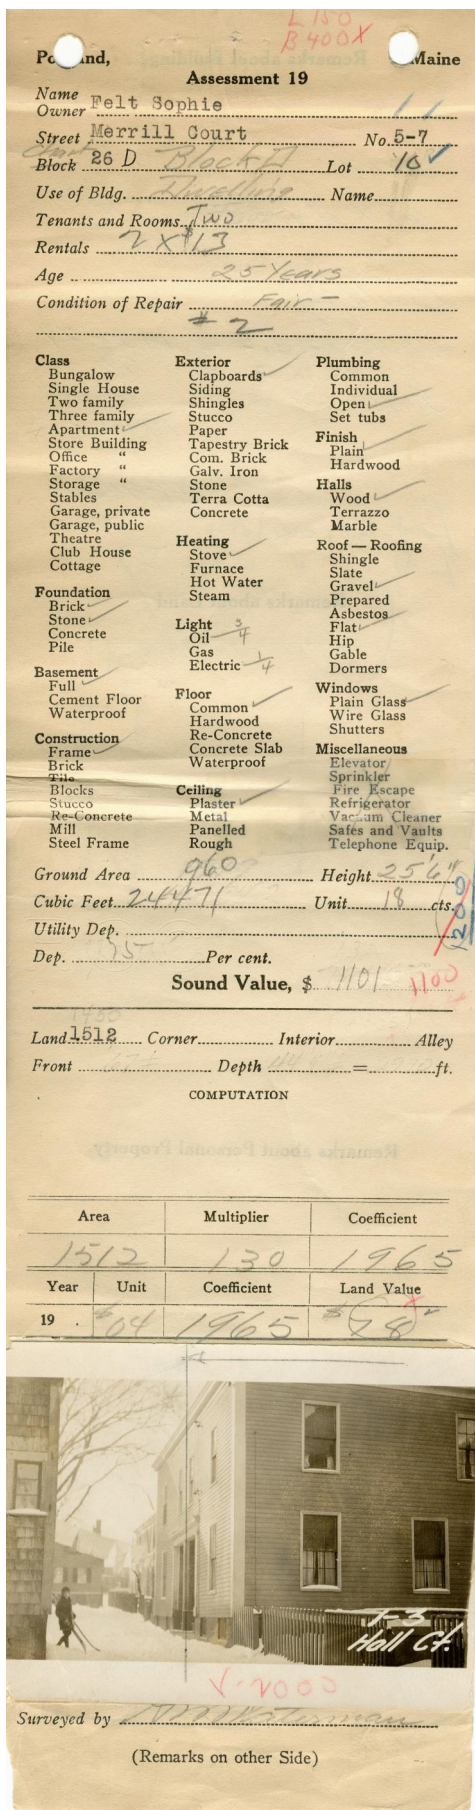 L 150
B 400 X
Portland, Maine
Assessment 19
Name
Owner Felt Sophie
Street Merrill Court No. 5-7
Chart
Block 26 D Block A Lot 10
Use of Bldg. Dwelling Name
Tenants and Rooms Two
Rentals 2 X $13
Age 25 Years
Condition of Repair Fair -
# 2
Class
Bungalow
Single House
Two family
Three family
Apartment
Store Building
Office "
Factory "
Storage "
Stables
Garage, private
Garage, public
Theatre
Club House
Cottage
Foundation
Brick
Stone
Concrete
Pile
Basement
Full
Cement Floor
Waterproof
Construction
Frame
Brick
Tile
Blocks
Stucco
Re-Concrete
Mill
Steel Frame
Exterior
Clapboards
Siding
Shingles
Stucco
Paper
Tapestry Brick
Com. Brick
Galv. Iron
Stone
Terra Cotta
Concrete
Heating
Stove
Furnace
Hot Water
Steam
Light
Oil 3/4
Gas
Electric 1/4
Floor
Common
Hardwood
Re-Concrete
Concrete Slab
Waterproof
Ceiling
Plaster
Metal
Panelled
Rough
Plumbing
Common
Individual
Open
Set tubs
Finish
Plain
Hardwood
Halls
Wood
Terrazzo
Marble
Roof — Roofing
Shingle
Slate
Gravel
Prepared
Asbestos
Flat
Hip
Gable
Dormers
Windows
Plain Glass
Wire Glass
Shutters
Miscellaneous
Elevator
Sprinkler
Fire Escape
Refrigerator
Vacuum Cleaner
Safes and Vaults
Telephone Equip.
Ground Area 960 Height 25'6"
Cubic Feet 24471 Unit 18 cts.
1200
Utility Dep.
Dep. 75 Per cent.
Sound Value, $ 1101 1100
Land 1512 Corner Interior Alley
Front Depth = ft.
COMPUTATION
Area Multiplier Coefficient
1512 130 1965
Year Unit Coefficient Land Value
19 . $04 1965 $78
J-3
Hall Ct.
V-2000
Surveyed by
(Remarks on other Side)